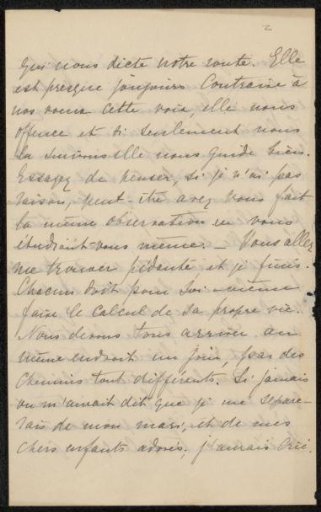 2
qui nous dicte notre route. Elle
est presque toujours contraire à
nos vœux cette voix, elle nous
offense et si seulement nous
la suivons elle nous guide bien.
Essayez de penser, si je n'ai pas
raison, peut-être avez vous fait
la même observation en vous
étudiant vous même. — Vous allez
me trouver pédante et je finis.
Chacun doit pour soi-même
faire le calcul de sa propre vie.
Nous devons tous arriver au
même endroit un jour, par des
chemins tout différents. Si jamais
on m'avait dit que je me sépare-
rais de mon mari, et de mes
chers enfants adorés, j'aurais crié.